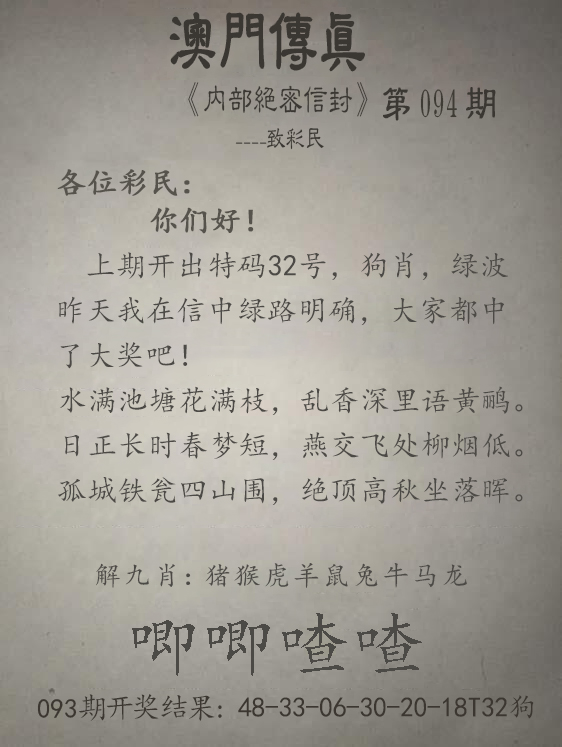 澳門傳眞
《内部絕密信封》第094期
----致彩民
各位彩民：
你们好！
上期开出特码32号，狗肖，绿波
昨天我在信中绿路明确，大家都中
了大奖吧！
水满池塘花满枝，乱香深里语黄鹂。
日正长时春梦短，燕交飞处柳烟低。
孤城铁瓮四山围，绝顶高秋坐落晖。
解九肖：猪猴虎羊鼠兔牛马龙
唧唧喳喳
093期开奖结果：48-33-06-30-20-18T32狗